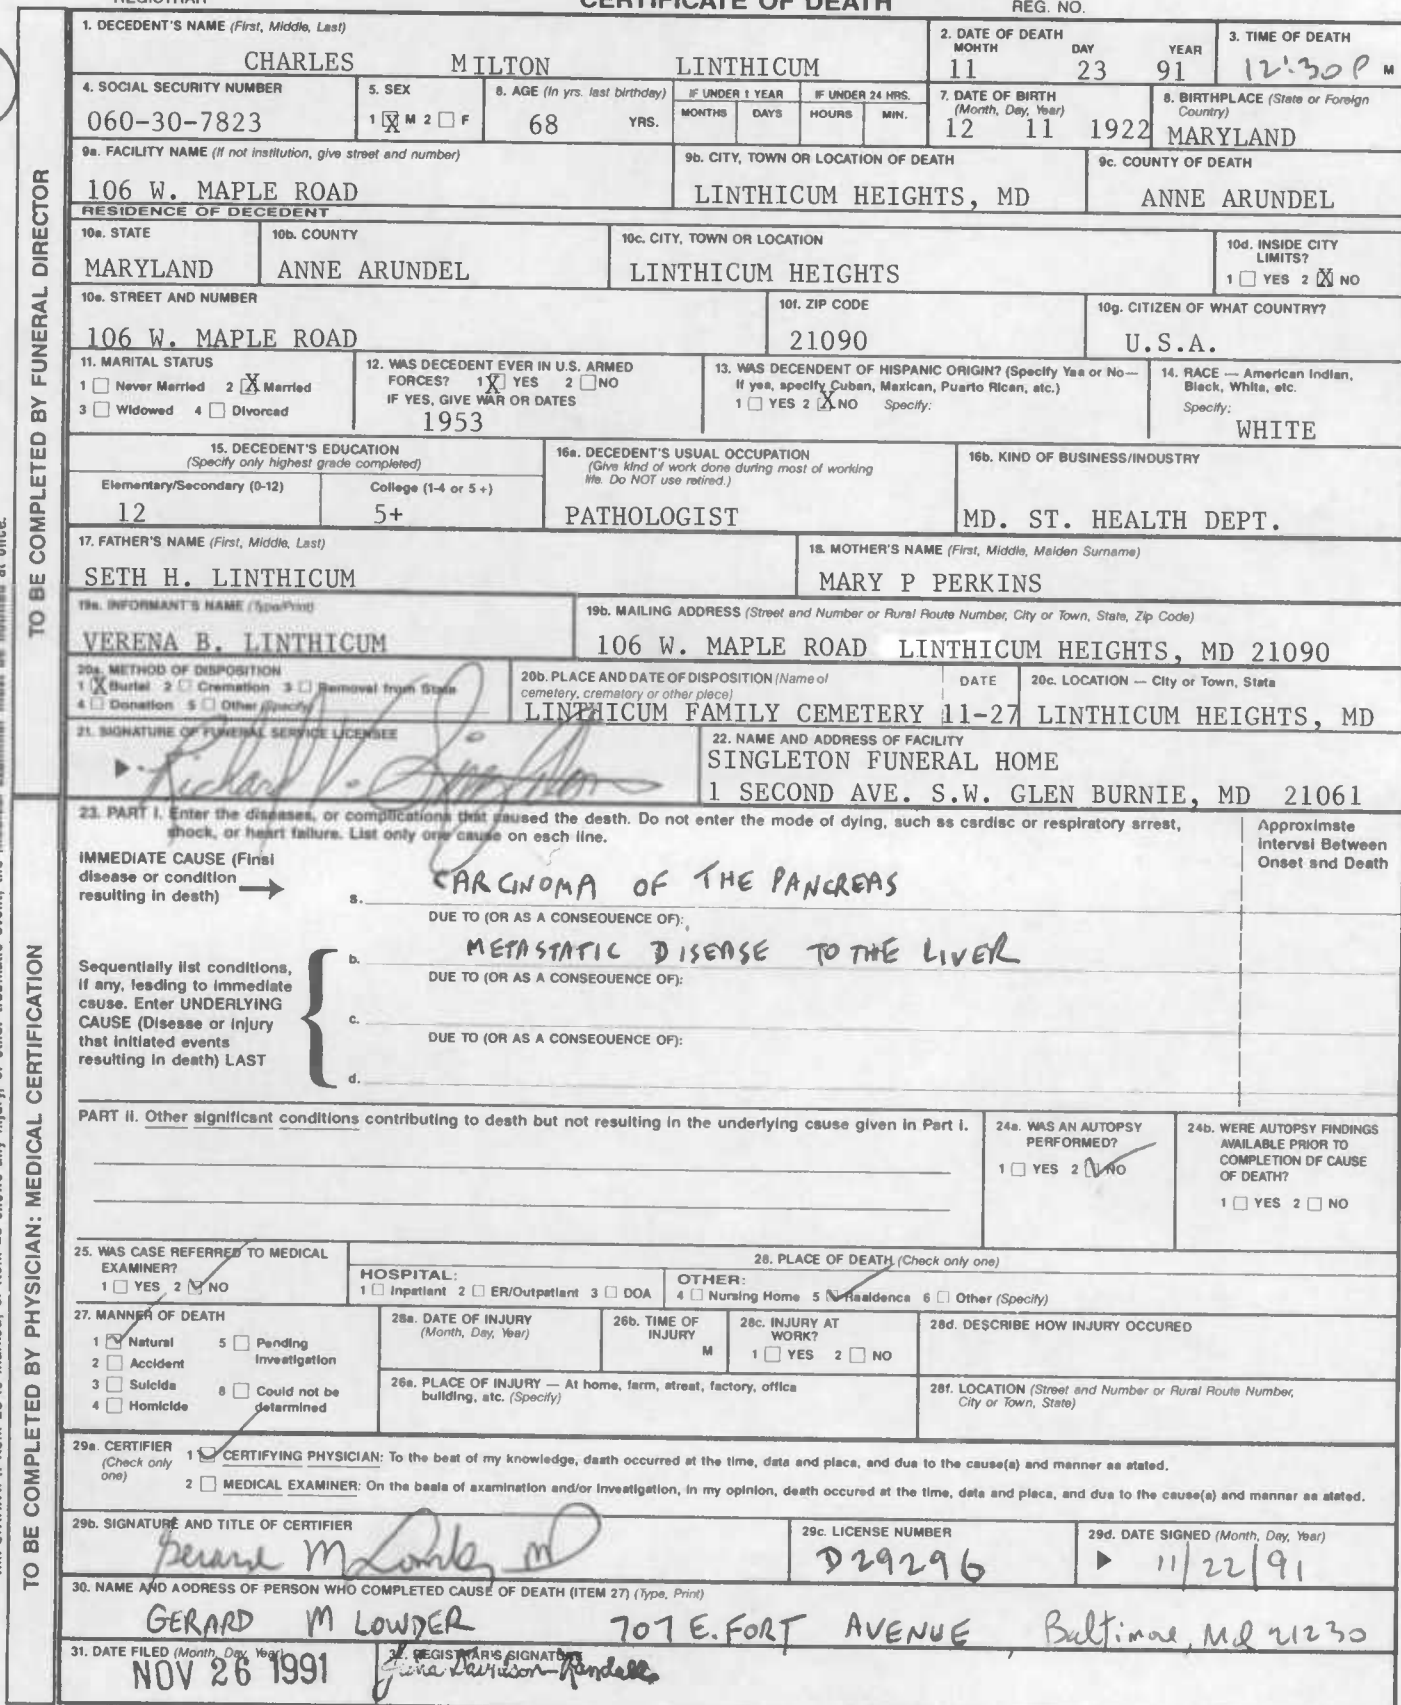 CERTIFICATE OF DEATH
REG. NO.
1. DECEDENT'S NAME (First, Middle, Last)
CHARLES MILTON LINTHICUM
2. DATE OF DEATH
MONTH DAY YEAR
11 23 91
3. TIME OF DEATH
12:30 P M
4. SOCIAL SECURITY NUMBER
060-30-7823
5. SEX
1 X M 2 F
6. AGE (In yrs. last birthday)
68 YRS.
IF UNDER 1 YEAR
MONTHS DAYS
IF UNDER 24 HRS.
HOURS MIN.
7. DATE OF BIRTH
(Month, Day, Year)
12 11 1922
8. BIRTHPLACE (State or Foreign
Country)
MARYLAND
9a. FACILITY NAME (If not institution, give street and number)
106 W. MAPLE ROAD
9b. CITY, TOWN OR LOCATION OF DEATH
LINTHICUM HEIGHTS, MD
9c. COUNTY OF DEATH
ANNE ARUNDEL
RESIDENCE OF DECEDENT
10a. STATE
MARYLAND
10b. COUNTY
ANNE ARUNDEL
10c. CITY, TOWN OR LOCATION
LINTHICUM HEIGHTS
10d. INSIDE CITY
LIMITS?
1 YES 2 X NO
10e. STREET AND NUMBER
106 W. MAPLE ROAD
10f. ZIP CODE
21090
10g. CITIZEN OF WHAT COUNTRY?
U.S.A.
11. MARITAL STATUS
1 Never Married 2 X Married
3 Widowed 4 Divorced
12. WAS DECEDENT EVER IN U.S. ARMED
FORCES? 1 X YES 2 NO
IF YES, GIVE WAR OR DATES
1953
13. WAS DECENDENT OF HISPANIC ORIGIN? (Specify Yes or No—
If yes, specify Cuban, Mexican, Puerto Rican, etc.)
1 YES 2 X NO Specify:
14. RACE — American Indian,
Black, White, etc.
Specify:
WHITE
15. DECEDENT'S EDUCATION
(Specify only highest grade completed)
Elementary/Secondary (0-12)
12
College (1-4 or 5+)
5+
16a. DECEDENT'S USUAL OCCUPATION
(Give kind of work done during most of working
life. Do NOT use retired.)
PATHOLOGIST
16b. KIND OF BUSINESS/INDUSTRY
MD. ST. HEALTH DEPT.
17. FATHER'S NAME (First, Middle, Last)
SETH H. LINTHICUM
18. MOTHER'S NAME (First, Middle, Maiden Surname)
MARY P PERKINS
19a. INFORMANT'S NAME (Type/Print)
VERENA B. LINTHICUM
19b. MAILING ADDRESS (Street and Number or Rural Route Number, City or Town, State, Zip Code)
106 W. MAPLE ROAD LINTHICUM HEIGHTS, MD 21090
20a. METHOD OF DISPOSITION
1 X Burial 2 Cremation 3 Removal from State
4 Donation 5 Other (Specify)
20b. PLACE AND DATE OF DISPOSITION (Name of
cemetery, crematory or other place)
DATE
LINTHICUM FAMILY CEMETERY 11-27
20c. LOCATION — City or Town, State
LINTHICUM HEIGHTS, MD
21. SIGNATURE OF FUNERAL SERVICE LICENSEE
Richard V. Singleton
22. NAME AND ADDRESS OF FACILITY
SINGLETON FUNERAL HOME
1 SECOND AVE. S.W. GLEN BURNIE, MD 21061
23. PART I. Enter the diseases, or complications that caused the death. Do not enter the mode of dying, such as cardiac or respiratory arrest,
shock, or heart failure. List only one cause on each line.
Approximate
Interval Between
Onset and Death
IMMEDIATE CAUSE (Final
disease or condition
resulting in death)
a. CARCINOMA OF THE PANCREAS
DUE TO (OR AS A CONSEQUENCE OF):
b. METASTATIC DISEASE TO THE LIVER
DUE TO (OR AS A CONSEQUENCE OF):
c.
DUE TO (OR AS A CONSEQUENCE OF):
d.
Sequentially list conditions,
if any, leading to immediate
cause. Enter UNDERLYING
CAUSE (Disease or injury
that initiated events
resulting in death) LAST
PART II. Other significant conditions contributing to death but not resulting in the underlying cause given in Part I.
24a. WAS AN AUTOPSY
PERFORMED?
1 YES 2 NO
24b. WERE AUTOPSY FINDINGS
AVAILABLE PRIOR TO
COMPLETION OF CAUSE
OF DEATH?
1 YES 2 NO
25. WAS CASE REFERRED TO MEDICAL
EXAMINER?
1 YES 2 NO
26. PLACE OF DEATH (Check only one)
HOSPITAL:
1 Inpatient 2 ER/Outpatient 3 DOA
OTHER:
4 Nursing Home 5 Residence 6 Other (Specify)
27. MANNER OF DEATH
1 Natural 5 Pending
Investigation
2 Accident
3 Suicide 6 Could not be
determined
4 Homicide
28a. DATE OF INJURY
(Month, Day, Year)
28b. TIME OF
INJURY
M
28c. INJURY AT
WORK?
1 YES 2 NO
28d. DESCRIBE HOW INJURY OCCURED
28e. PLACE OF INJURY — At home, farm, street, factory, office
building, etc. (Specify)
28f. LOCATION (Street and Number or Rural Route Number,
City or Town, State)
29a. CERTIFIER
(Check only
one)
1 CERTIFYING PHYSICIAN: To the best of my knowledge, death occurred at the time, date and place, and due to the cause(s) and manner as stated.
2 MEDICAL EXAMINER: On the basis of examination and/or investigation, in my opinion, death occured at the time, date and place, and due to the cause(s) and manner as stated.
29b. SIGNATURE AND TITLE OF CERTIFIER
Gerard M Lowder MD
29c. LICENSE NUMBER
D29296
29d. DATE SIGNED (Month, Day, Year)
11/22/91
30. NAME AND ADDRESS OF PERSON WHO COMPLETED CAUSE OF DEATH (ITEM 27) (Type, Print)
GERARD M LOWDER 707 E. FORT AVENUE, Baltimore, Md 21230
31. DATE FILED (Month, Day, Year)
NOV 26 1991
32. REGISTRAR'S SIGNATURE
Davidson-Randall
TO BE COMPLETED BY FUNERAL DIRECTOR
TO BE COMPLETED BY PHYSICIAN: MEDICAL CERTIFICATION